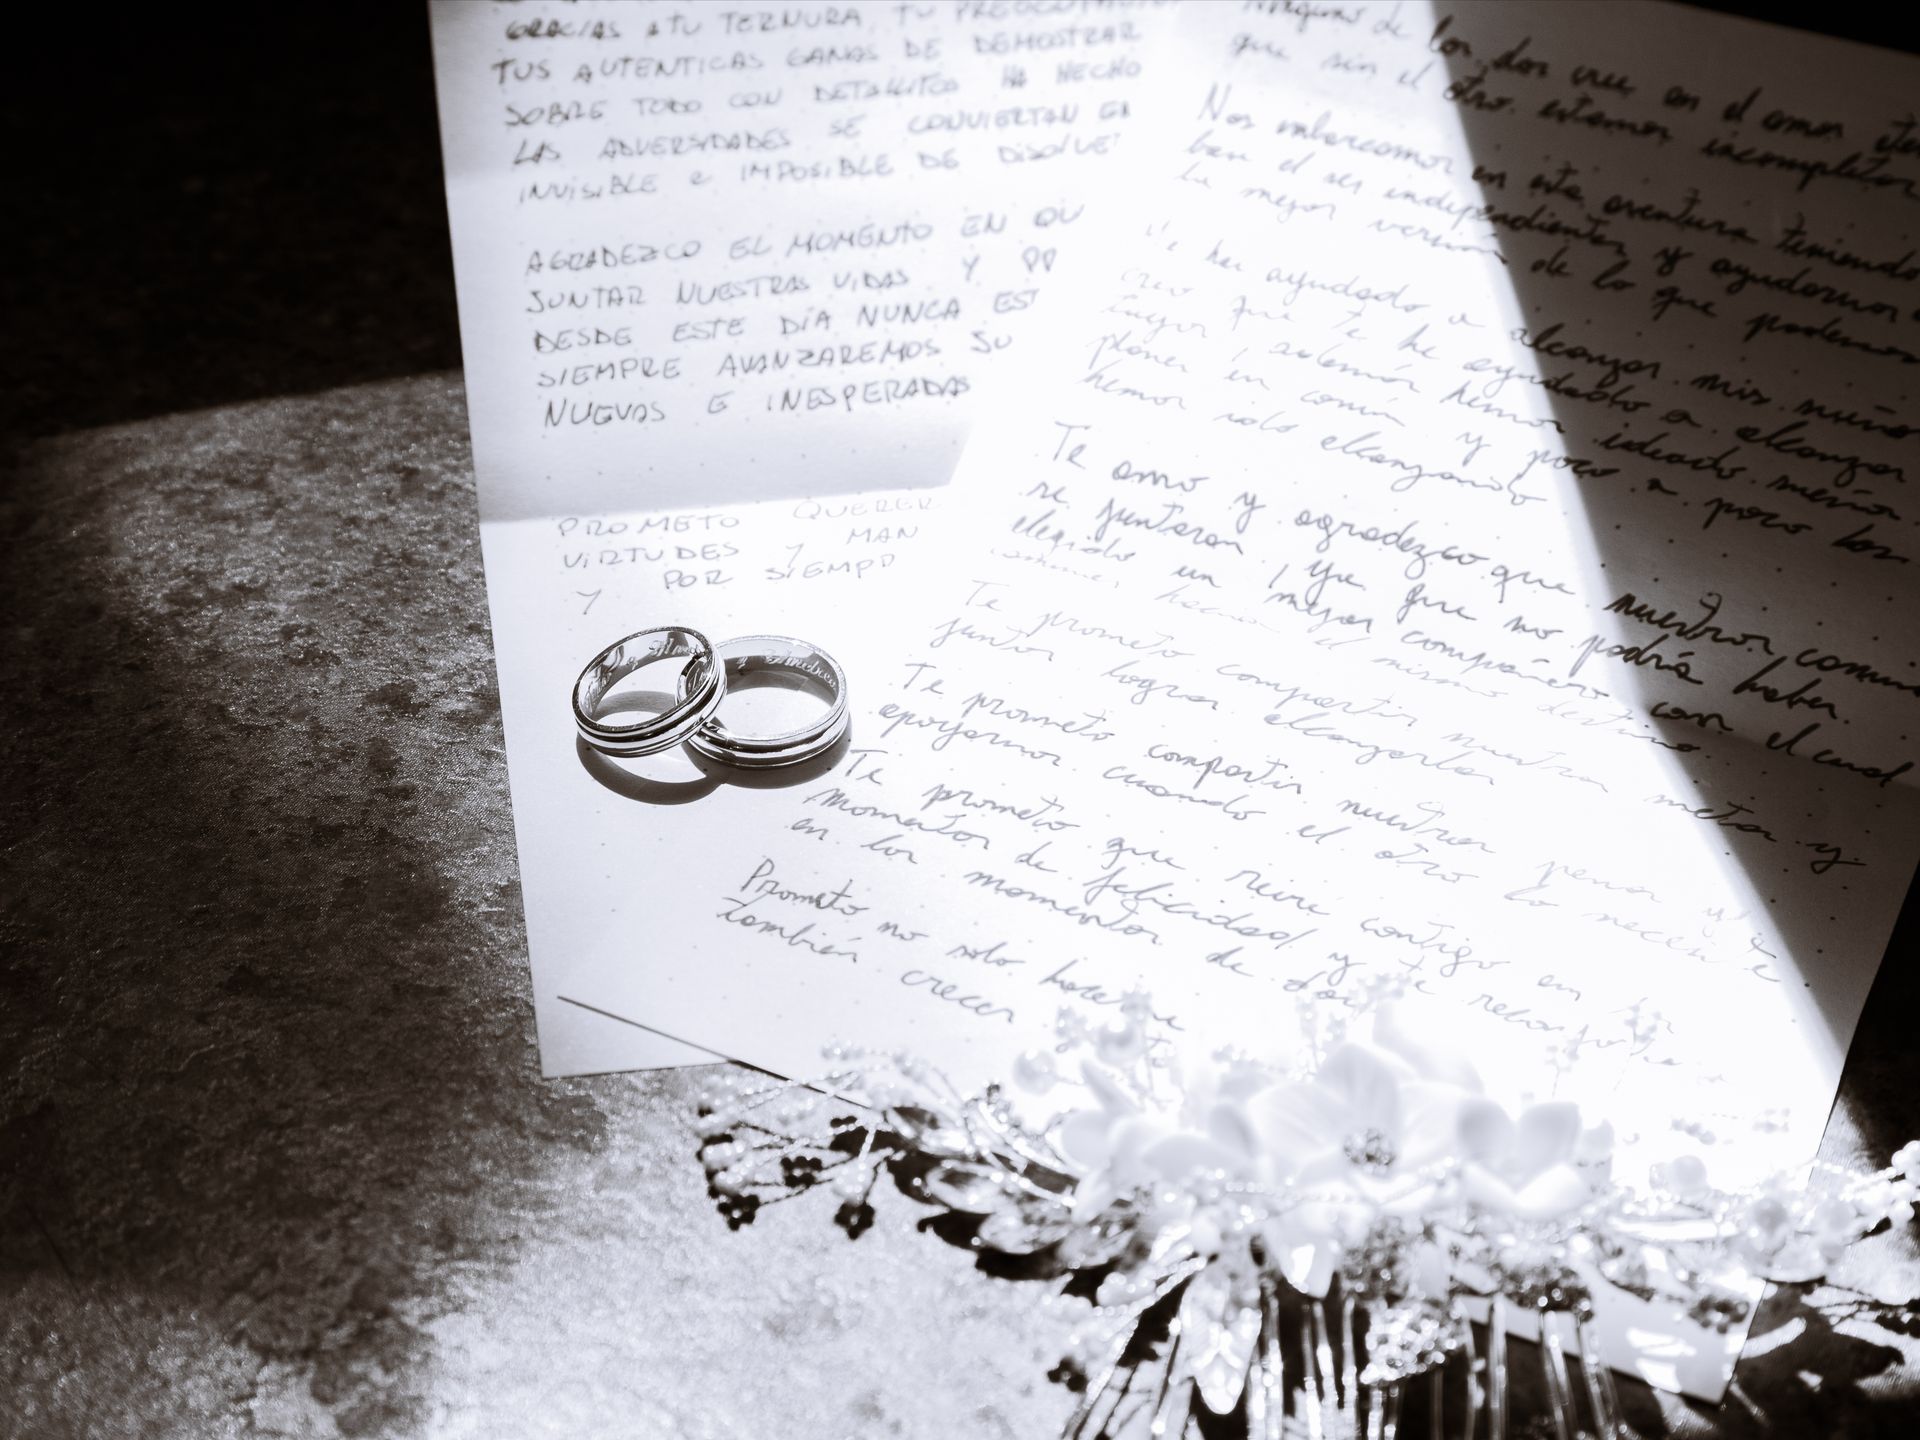 GRACIAS A TU TERNURA, TU
TUS AUTENTICAS GANAS DE DEMOSTRAR
SOBRE TODO CON DETALLITOS HA HECHO
LAS ADVERSIDADES SE CONVIERTAN EN
INVISIBLE E IMPOSIBLE DE
AGRADEZCO EL MOMENTO EN QU
JUNTAR NUESTRAS VIDAS Y
DESDE ESTE DÍA NUNCA EST
SIEMPRE AVANZAREMOS JU
NUEVAS E INESPERADAS
PROMETO QUERER
VIRTUDES Y MAN
Y POR SIEMP
Ninguno de los dos cree en el amor
que sin el otro estamos incompletos
Nos embarcamos en esta aventura teniendo
bien el ser independientes y ayudarnos a
la mejor versión de lo que podemos
Me has ayudado a alcanzar mis sueños
creo que te he ayudado a alcanzar
tuyos, además hemos ideado sueños
planes en común y poco a poco los
hemos ido alcanzando
Te amo y agradezco que nuestros camin
se juntaran, ya que no podría haber
elegido un mejor compañero con el cual
caminar hacia el mismo destino
Te prometo compartir nuestras metas y
juntos lograr alcanzarlas
Te prometo compartir nuestras penas y
apoyarnos cuando el otro lo necesite
Te prometo que reiré contigo en los
momentos de felicidad y te
en los momentos de
Prometo no solo
también crecer
Andrea